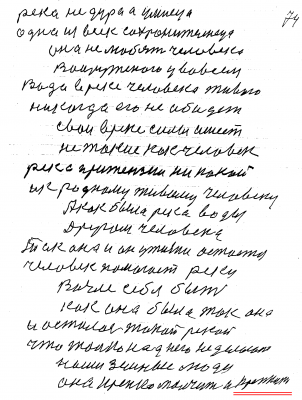 74
река не дура а умница
одна из всех сохранительница
она не любит человека
Вооруженого у вовсем
Вода в реке человека живого
никогда его не обидет
свои в реке силы имеет
не такие как человек
река притензии ни какой
к родному живому человеку
А как была река воды
Другом человека
Так она и он уживи остается
человек помогает реку
Возле себя быть
как она была так она
и осталась такой рекой
что только над него не делают
наши земные люди
она крепко молчит и кряхтит